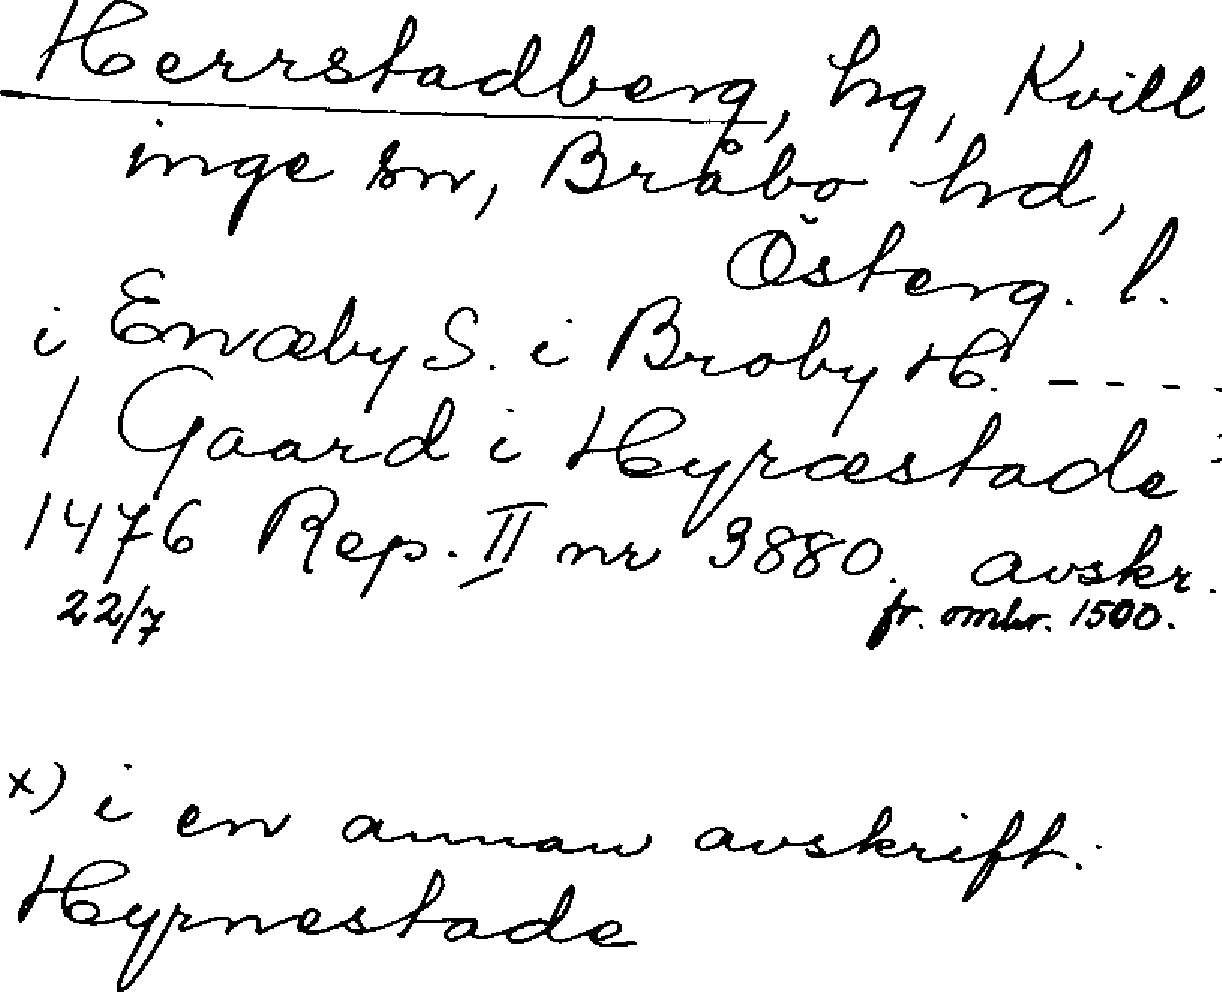 Herrstadberg, hg, Kvill
inge sn, Bråbo hd,
Österg. l.
i Enæby S. i Broby H. - - - -
1 Gaard i Hyræstade :
1476 Rep. II nr 3880. avskr.
22/7 fr. omkr. 1500.
x) i en annan avskrift:
Hyrnestade